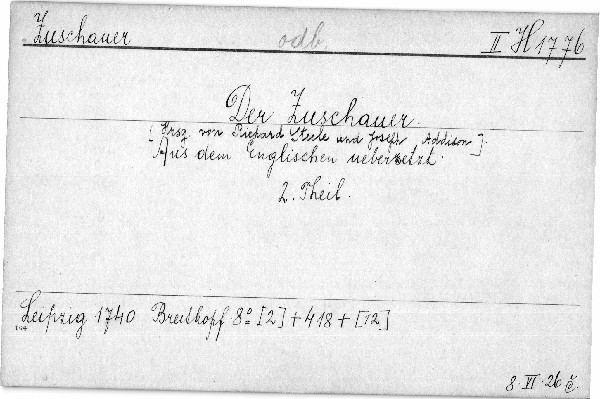 Zuschauer odb. II H 1776
Der Zuschauer.
[Hrsg. von Richard Steele und Joseph Addison].
Aus dem Englischen uebersetzt.
2. Theil.
Leipzig 1740 Breitkopf 8º [2] + 418 + [12]
8. VI. 26 č.